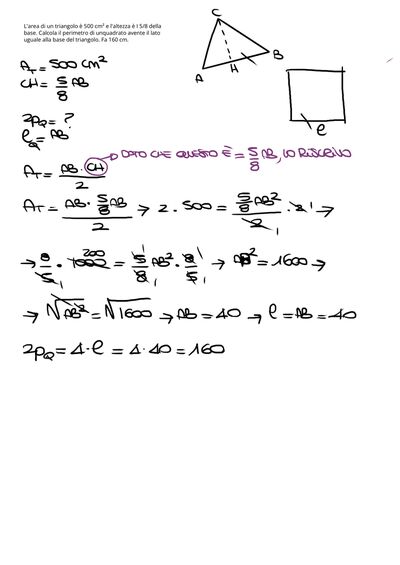 L'area di un triangolo è 500 cm² e l'altezza è I 5/8 della
base. Calcola il perimetro di unquadrato avente il lato
uguale alla base del triangolo. Fa 160 cm.
C
A
H
B
A_T = 500 cm²
CH = 5/8 AB
ℓ
2p_Q = ?
ℓ_Q = AB
A_T = AB · CH / 2 → DATO CHE QUESTO È = 5/8 AB, LO RISCRIVO
A_T = AB · 5/8 AB / 2 → 2 · 500 = 5/8 AB² / 2 1 · 2 1 →
→ 8/5 1 · 1000 200 = 5 1/8 1 AB² · 8 1/5 1 → AB² = 1600 →
→ √AB² = √1600 → AB = 40 → ℓ = AB = 40
2p_Q = 4 · ℓ = 4 · 40 = 160